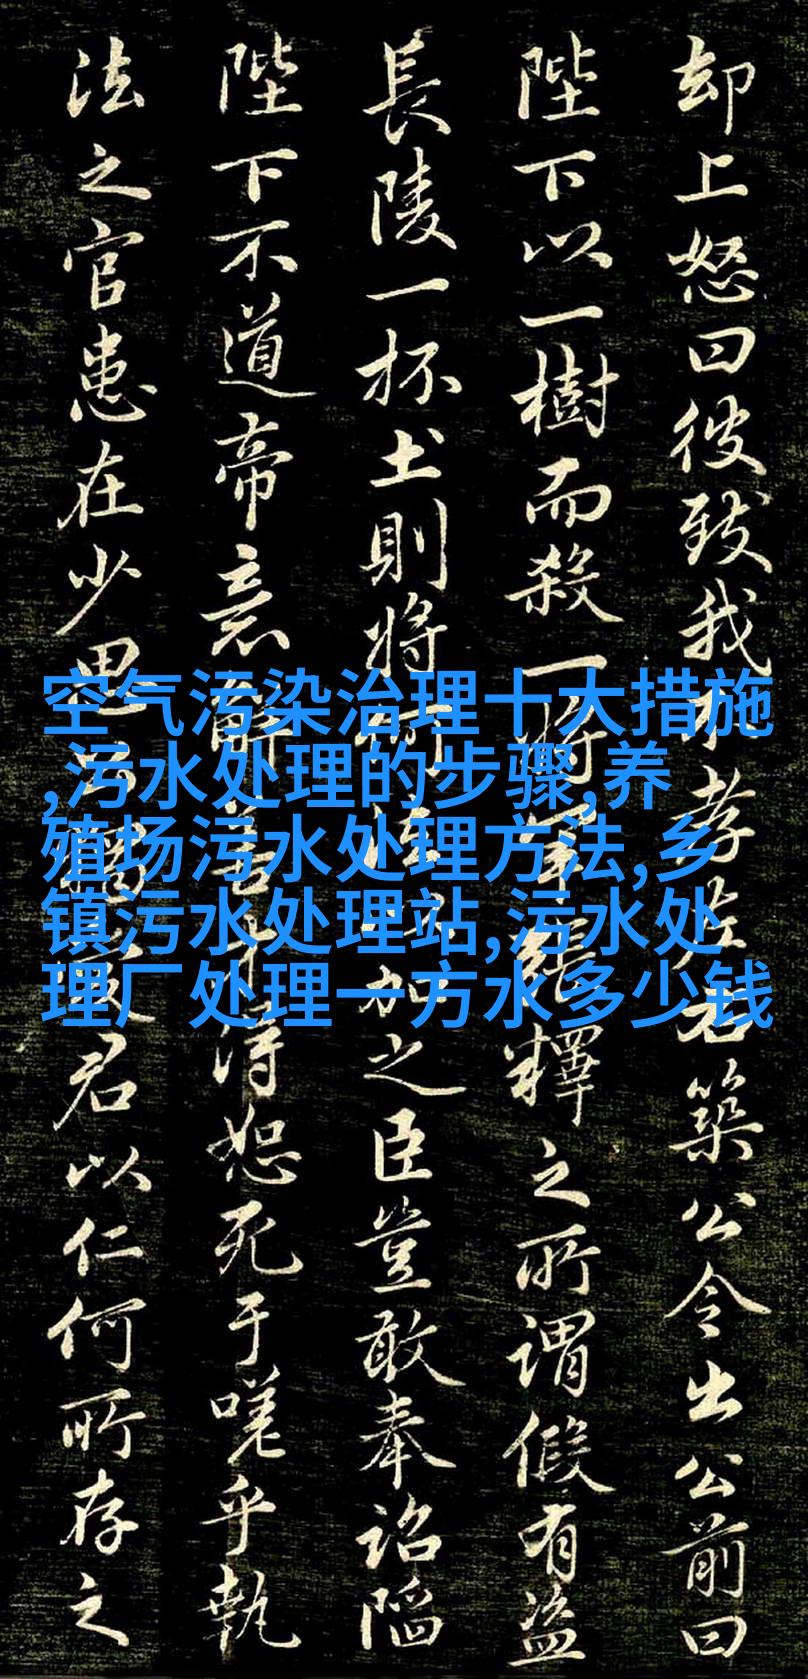 却上怒曰彼致我不孝左右築公令出公前曰
陛下以一樹而殺一将軍釋之所謂假有盗
長陵一抔土則将何法以加之臣豈敢奉詔陷
陛下不道帝意解善才得恕死于嗟乎執
法之官患在少恩公獨愛君以仁何所存之
空气污染治理十大措施
,污水处理的步骤,养
殖场污水处理方法,乡
镇污水处理站,污水处
理厂处理一方水多少钱